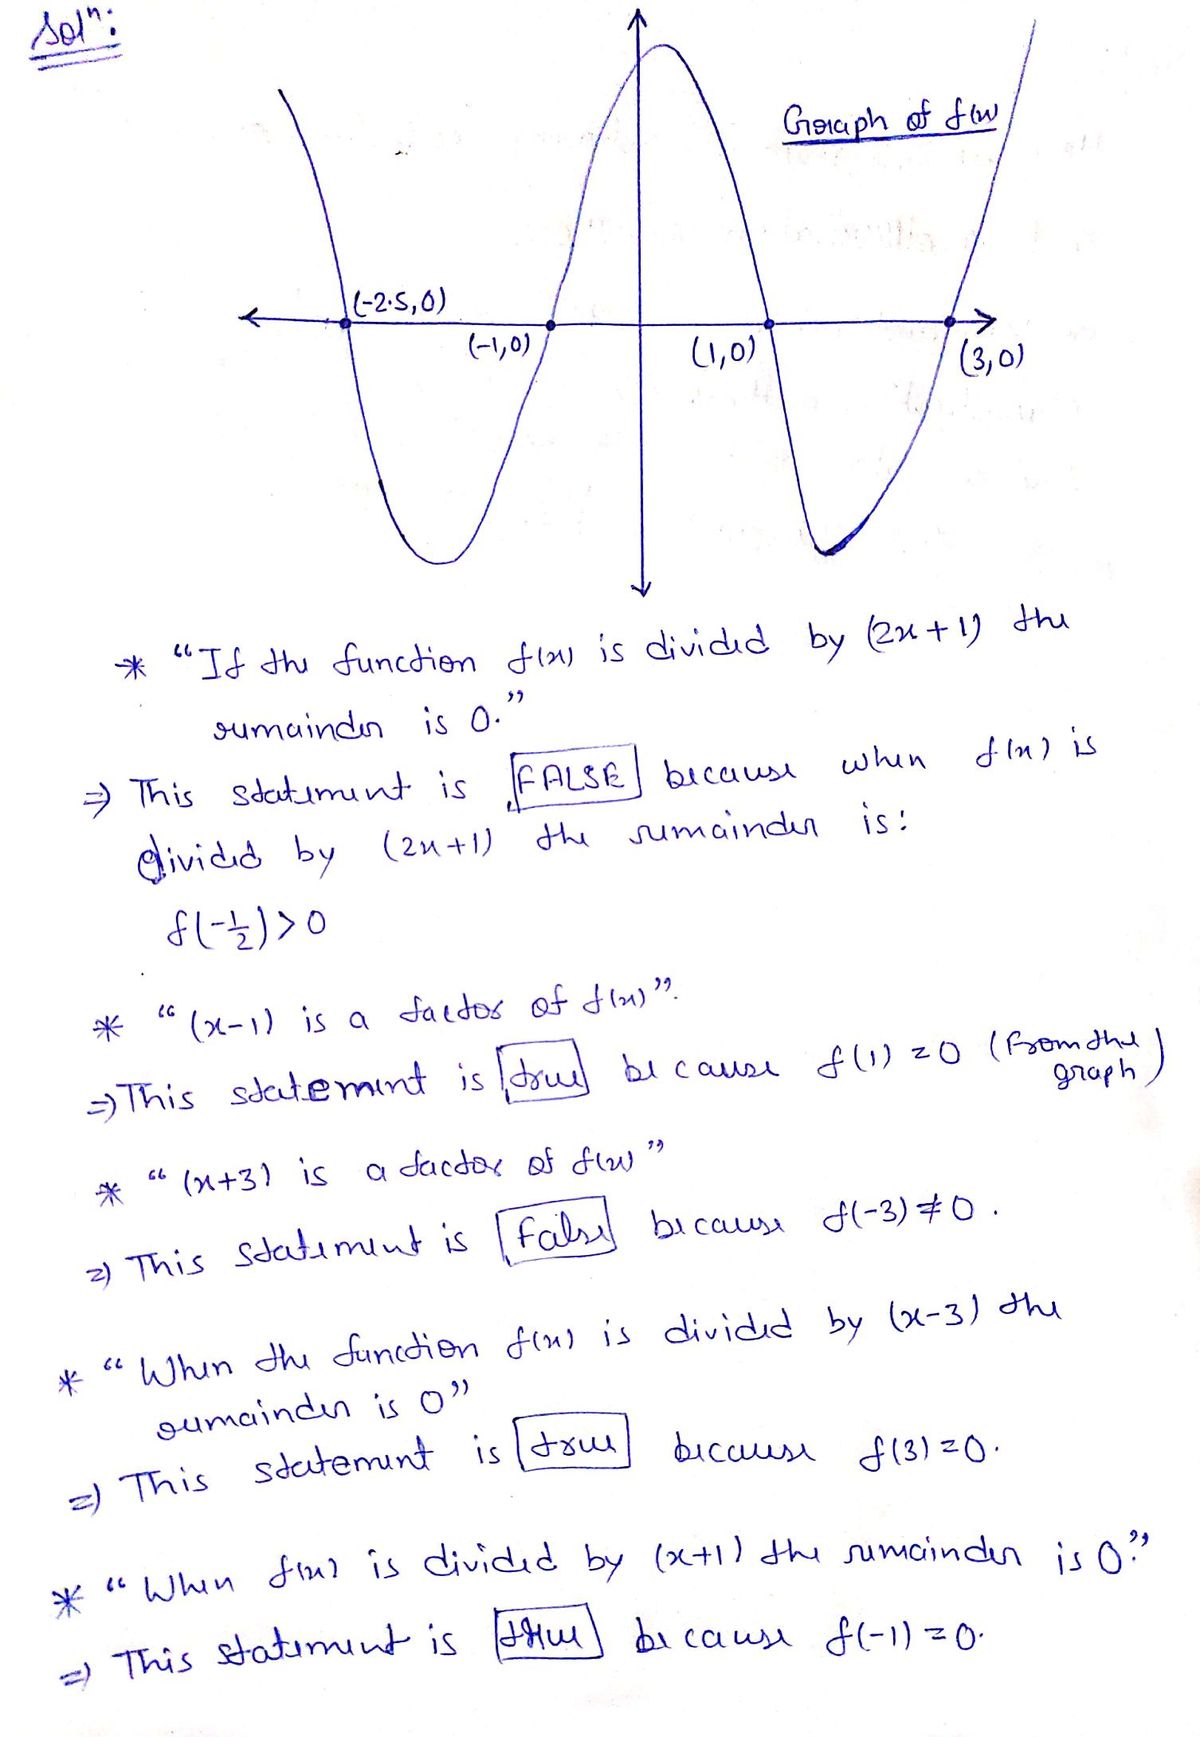 Solⁿ:
Graph of f(x)
(-2.5,0)
(-1,0)
(1,0)
(3,0)
* "If the function f(x) is divided by (2x+1) the
remainder is 0."
⇒ This statement is FALSE because when f(x) is
divided by (2x+1) the remainder is:
f(-1/2)>0
* "(x-1) is a factor of f(x)".
⇒ This statement is true because f(1)=0 (From the graph)
* "(x+3) is a factor of f(x)"
⇒ This statement is False because f(-3)≠0.
* "When the function f(x) is divided by (x-3) the
remainder is 0"
⇒ This statement is true because f(3)=0.
* "When f(x) is divided by (x+1) the remainder is 0."
⇒ This statement is true because f(-1)=0.